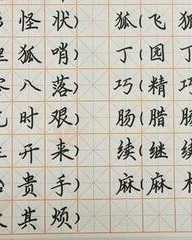 怪状) 狐(飞狐
狐哨) 丁(园丁
八落) 巧(精巧
时艰) 肠(腊肠
开来) 续(继续
贵手) 麻(麻
其烦)